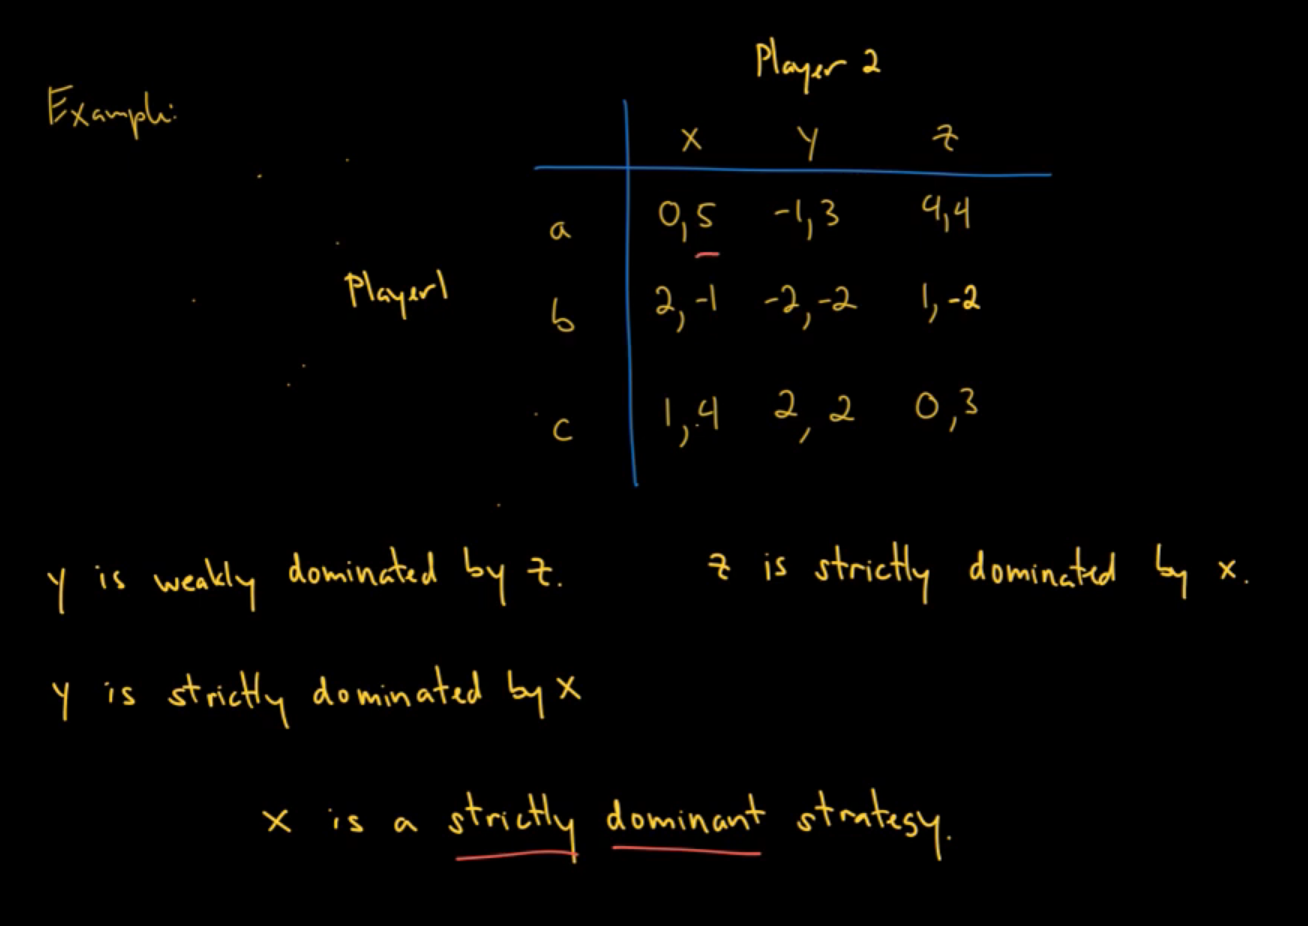 Player 2
Example:
x y z
a 0,5 -1,3 4,4
Player 1
b 2,-1 -2,-2 1,-2
c 1,4 2,2 0,3
y is weakly dominated by z. z is strictly dominated by x.
y is strictly dominated by x
x is a strictly dominant strategy.